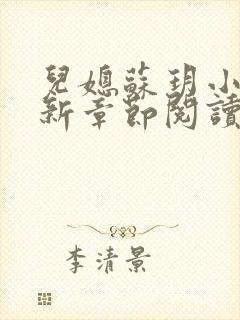 兒媳蘇玥小
新章節閱讀
李清景